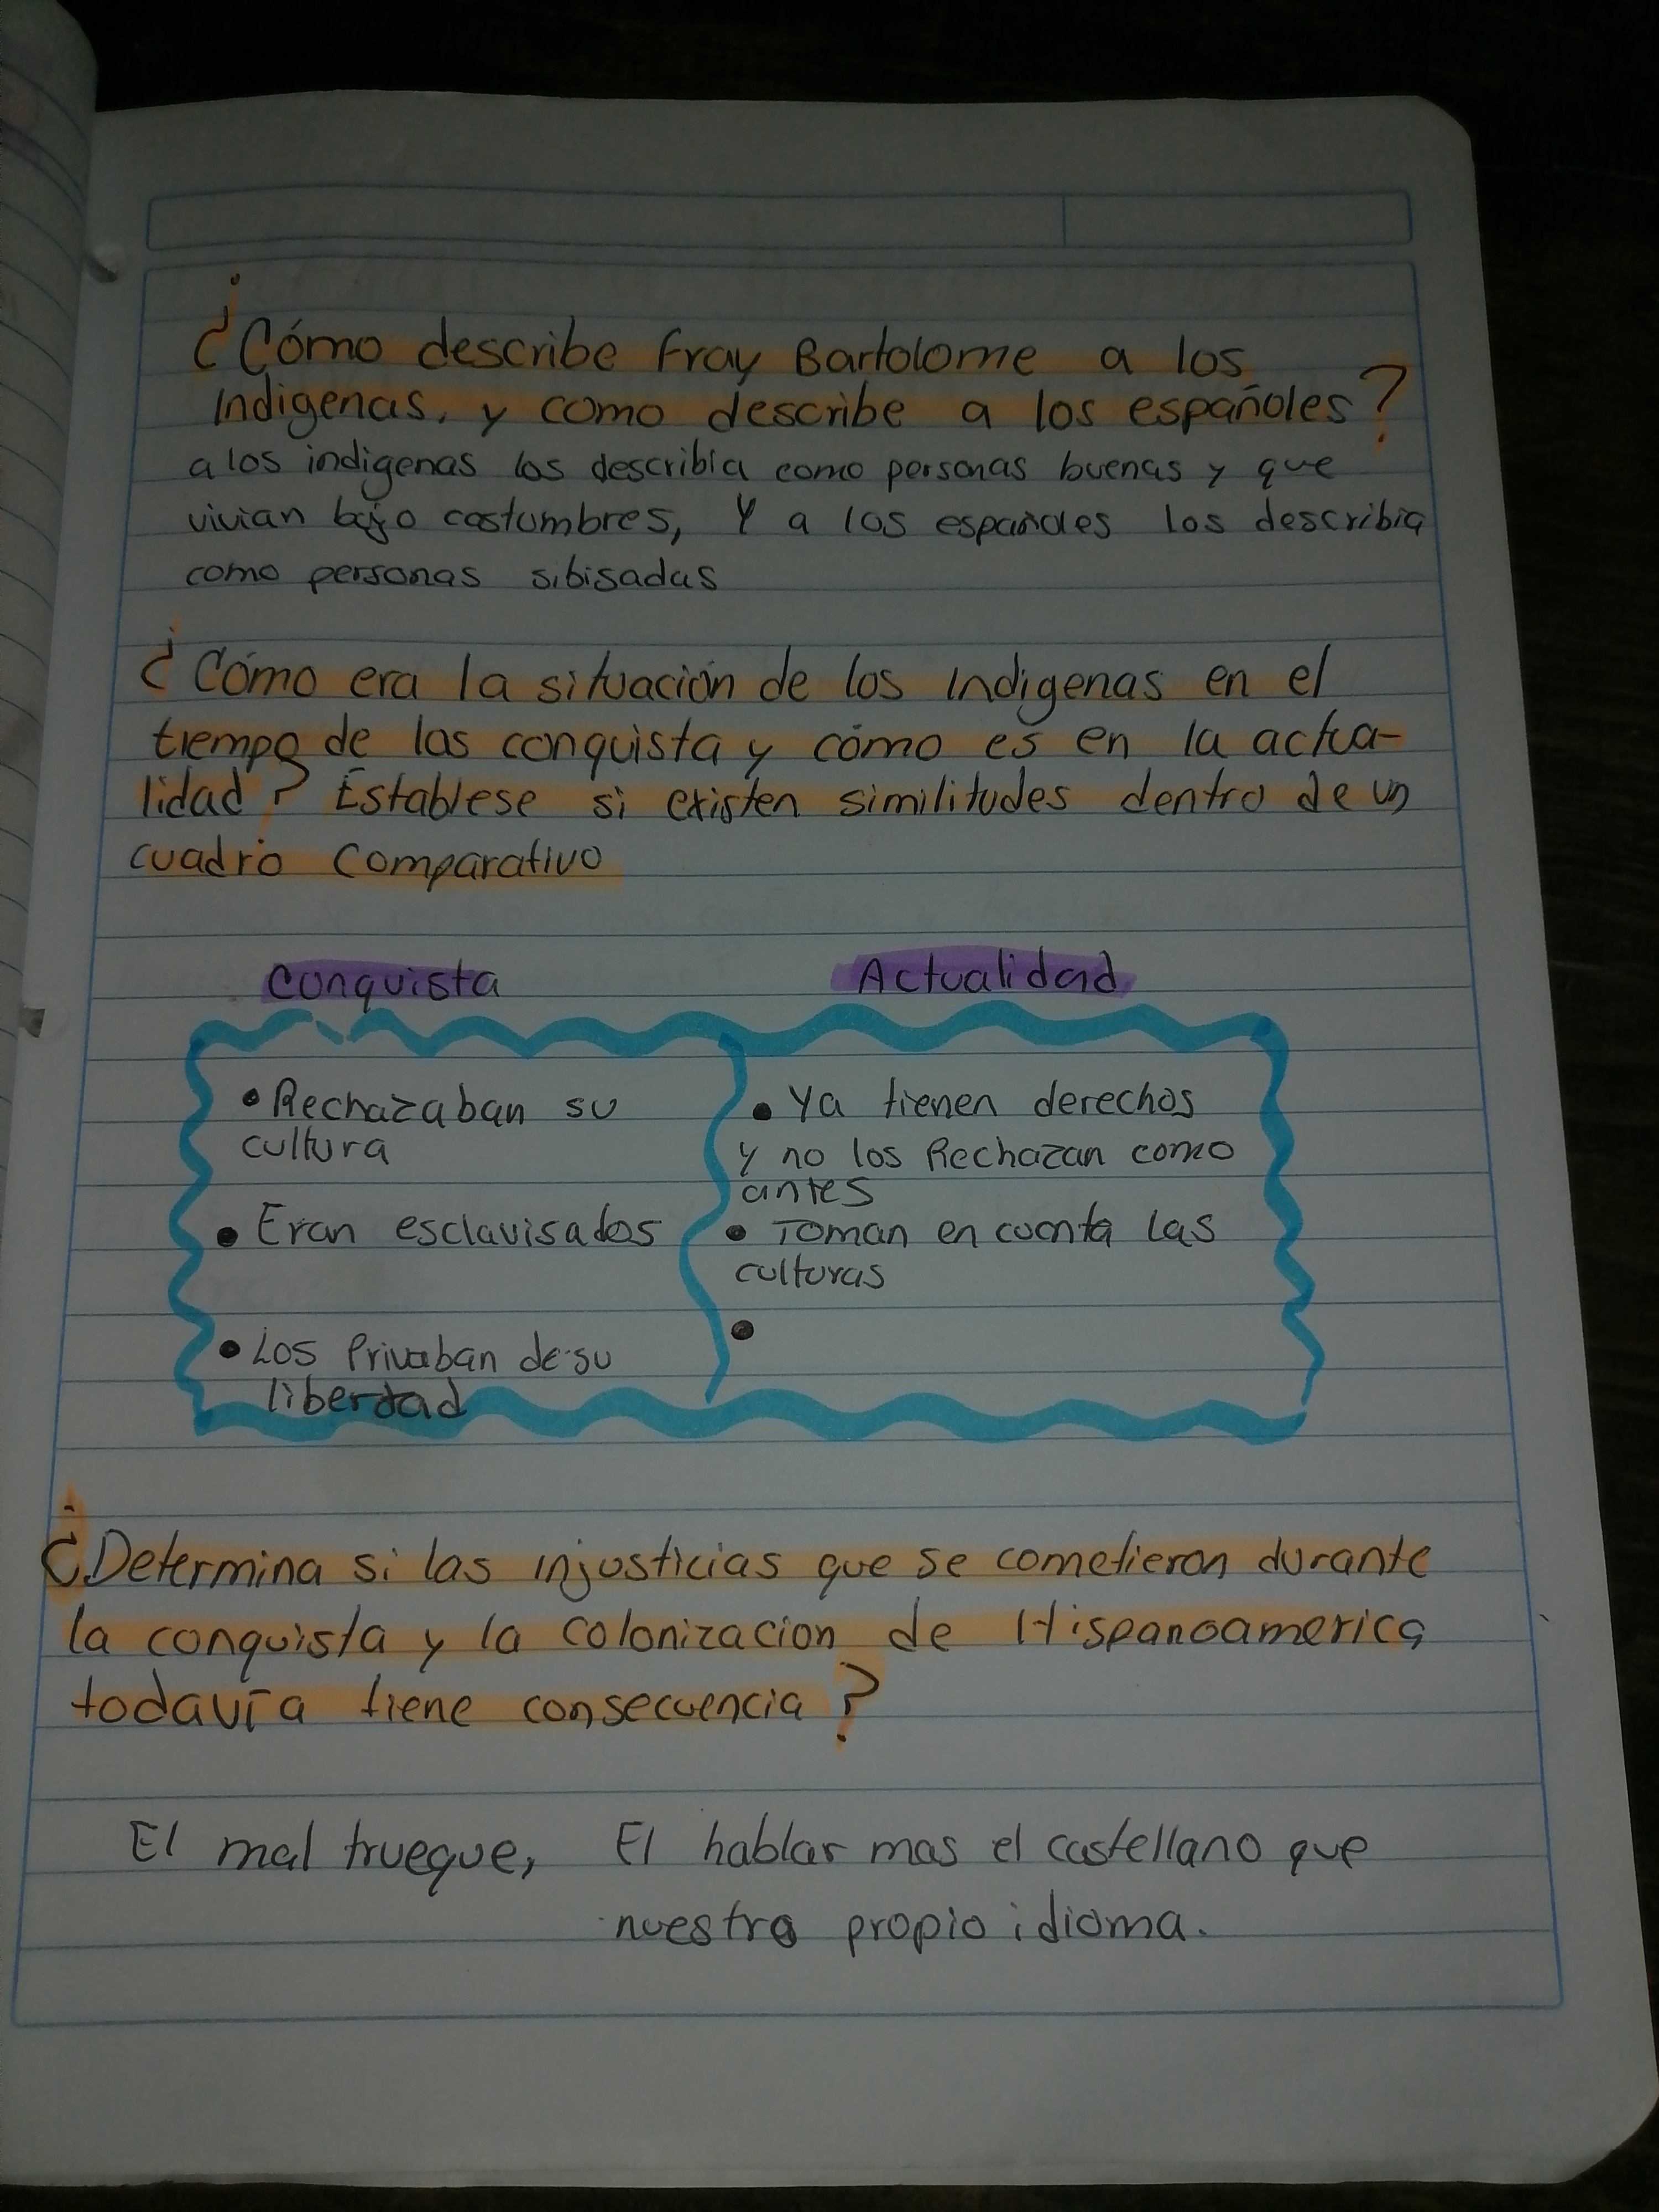 ¿Cómo describe Fray Bartolome a los
Indigenas, y como describe a los españoles?
a los indigenas los describia como personas buenas y que
vivian bajo costumbres, Y a los españoles los describia
como personas sibisadas
¿Cómo era la situación de los Indigenas en el
tiempo de las conquista y cómo es en la actua-
lidad? Establese si existen similitudes dentro de un
cuadro Comparativo
Conquista
• Rechazaban su
cultura
• Eran esclavisados
• Los Privaban de su
libertad
Actualidad
• Ya tienen derechos
y no los Rechazan como
antes
• Toman en cuenta las
culturas
•
¿Determina si las injusticias que se cometieron durante
la conquista y la colonizacion de Hispanoamerica
todavía tiene consecuencia?
El mal trueque, El hablar mas el castellano que
nuestro propio idioma.